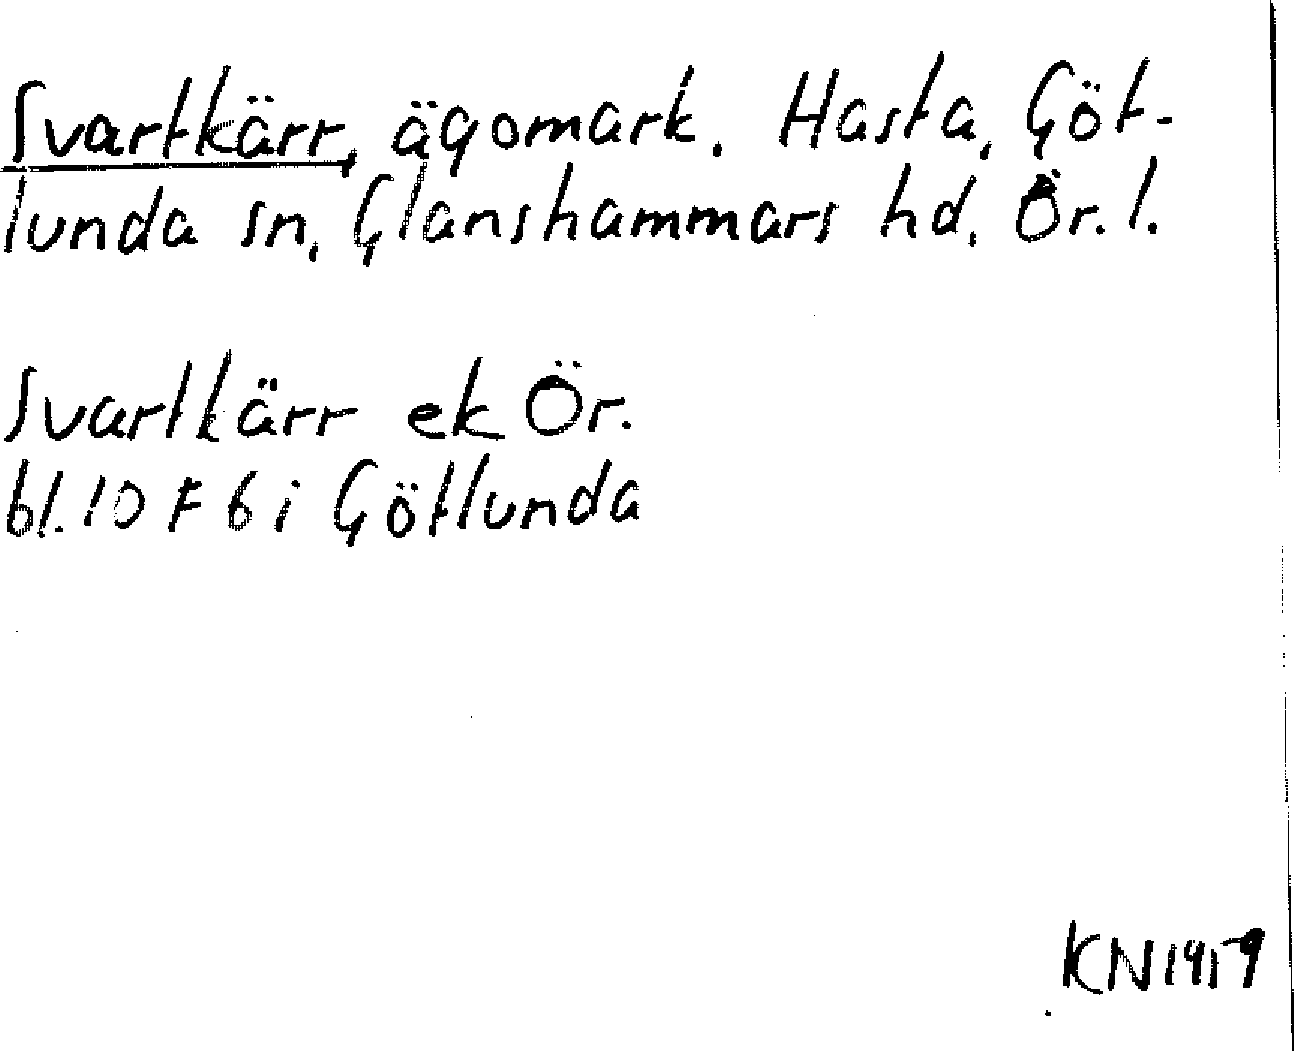 Svartkärr, ägomark. Hasta, Göt-
lunda sn, Glanshammars hd, Ör. l.
Svartkärr ek Ör.
bl. 10 F 6 i Götlunda